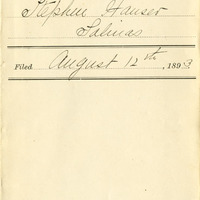 Stephen Hauser
Salinas
Filed August 12th, 1893